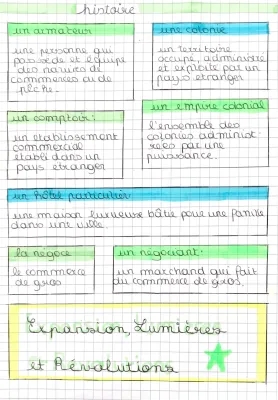 histoire
un armateur
une personne qui
possède et équipe
des navires de
commerces ou de
pêche.
une colonie
un territoire
occupé, administré
et exploité par un
pays étranger
un comptoir:
un établissement
commercial
établi dans un
pays étranger
un empire colonial
l'ensemble des
colonies administ-
rées par une
puissance.
un hôtel particulier
une maison luxueuse bâtie pour une famille
dans une ville.
la négoce
le commerce
de gros
un négociant:
un marchand qui fait
du commerce de gros.
Expansion, Lumières
et Révolutions